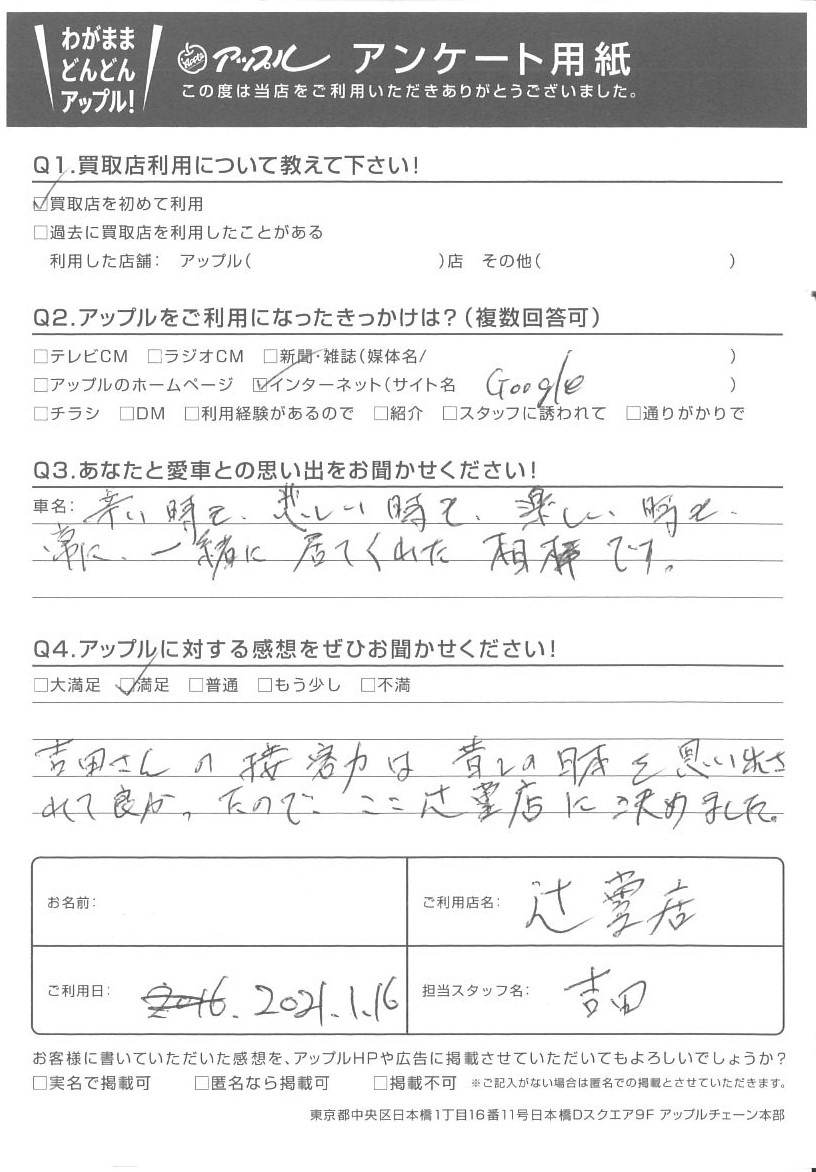 わがまま
どんどん
アップル!
アップル アンケート用紙
この度は当店をご利用いただきありがとうございました。
Q1.買取店利用について教えて下さい!
☑買取店を初めて利用
□過去に買取店を利用したことがある
利用した店舗: アップル( )店 その他( )
Q2.アップルをご利用になったきっかけは?(複数回答可)
□テレビCM □ラジオCM □新聞・雑誌(媒体名/ )
□アップルのホームページ ☑インターネット(サイト名 Google )
□チラシ □DM □利用経験があるので □紹介 □スタッフに誘われて □通りがかりで
Q3.あなたと愛車との思い出をお聞かせください!
車名: 辛い時も、悲しい時も、楽しい時も、
常に、一緒に居てくれた相棒です。
Q4.アップルに対する感想をぜひお聞かせください!
□大満足 ☑満足 □普通 □もう少し □不満
吉田さんの接客力は昔しの日本を思い出さ
れて良かったので、ここ辻堂店に決めました。
お名前:
ご利用店名: 辻堂店
ご利用日: 2016. 2021.1.16
担当スタッフ名: 吉田
お客様に書いていただいた感想を、アップルHPや広告に掲載させていただいてもよろしいでしょうか?
□実名で掲載可 □匿名なら掲載可 □掲載不可 ※ご記入がない場合は匿名での掲載とさせていただきます。
東京都中央区日本橋1丁目16番11号日本橋Dスクエア9F アップルチェーン本部